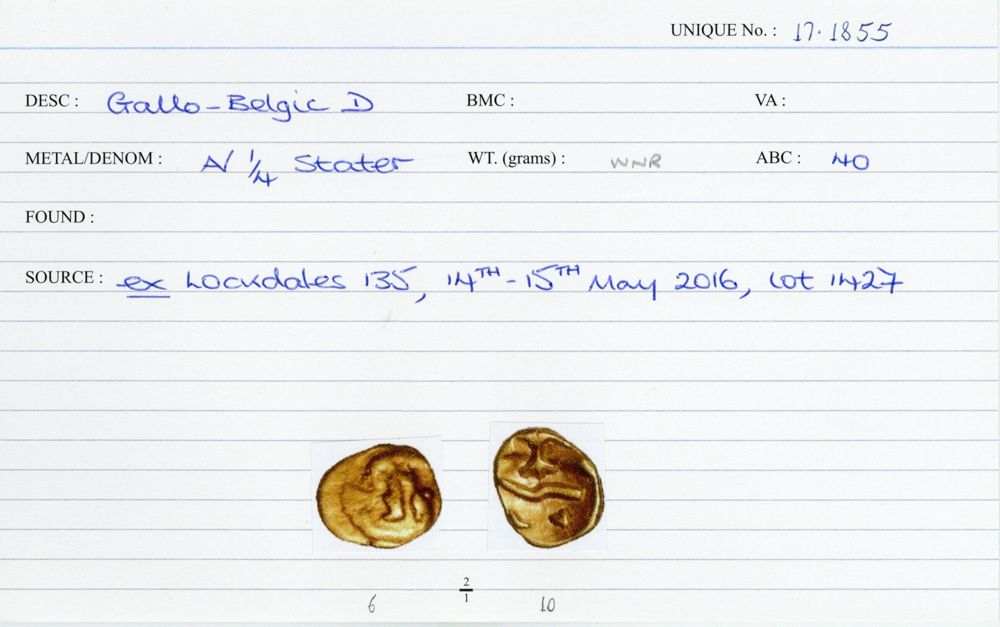 UNIQUE No. : 17.1855
DESC : Gallo-Belgic D BMC : VA :
METAL/DENOM : A/ 1/4 Stater WT. (grams) : WNR ABC : 40
FOUND :
SOURCE : ex Lockdales 135, 14TH-15TH May 2016, Lot 1427
2
1
6 10